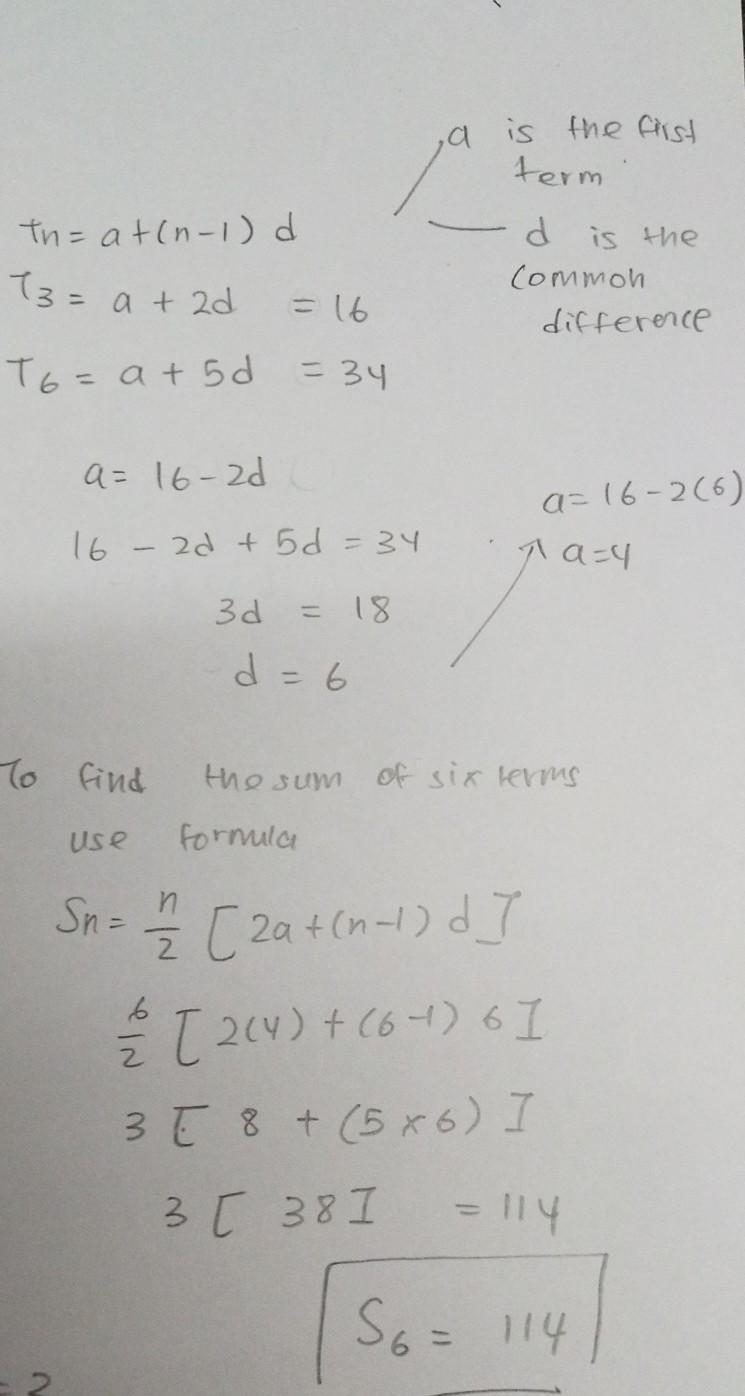 a is the first
term
tn = a+(n-1) d
d is the
common
difference
T3 = a + 2d = 16
T6 = a + 5d = 34
a= 16-2d
16 - 2d + 5d = 34
3d = 18
d = 6
a= 16-2(6)
a=4
To find the sum of six terms
use formula
Sn = n/2 [2a+(n-1) d]
6/2 [2(4) + (6-1) 6]
3 [ 8 + (5 x 6) ]
3 [ 38] = 114
S6 = 114